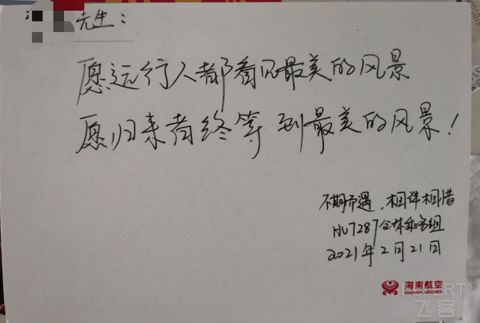 先生：
愿远行人都看见最美的风景
愿归来者终等到最美的风景！
不期而遇，相伴相惜
HU7287全体乘务组
2021年2月21日
海南航空
HAINAN AIRLINES
飞客